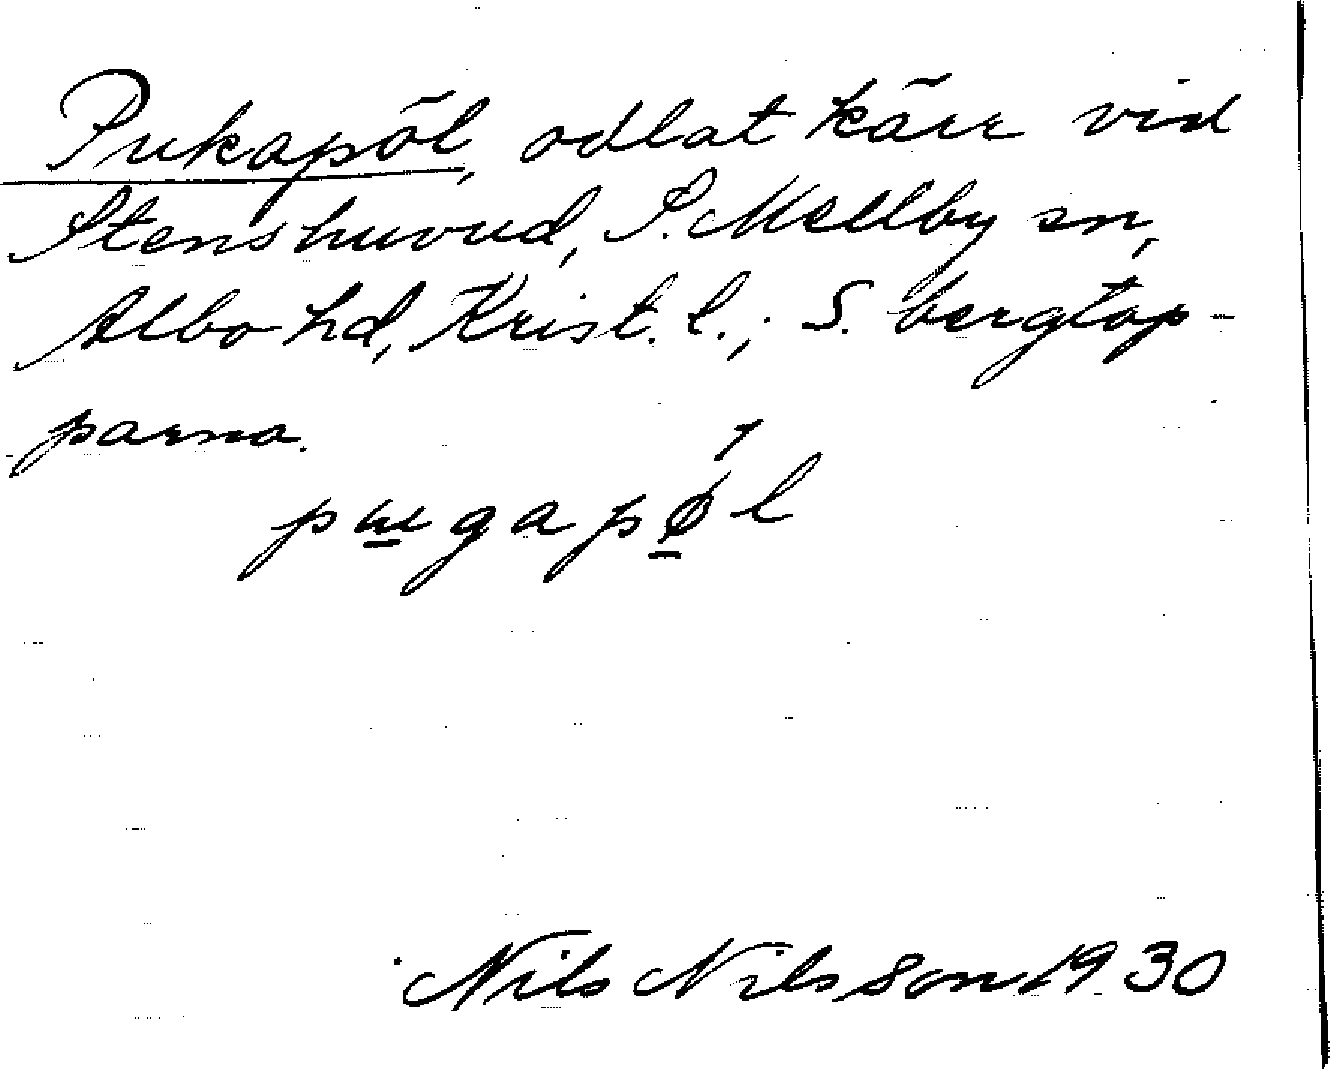 Pukapöl, odlat kärr vid
Stenshuvud, S. Mellby sn,
Albo hd, Krist. l.; S. bergtop-
parna.
Nils Nilsson 1930